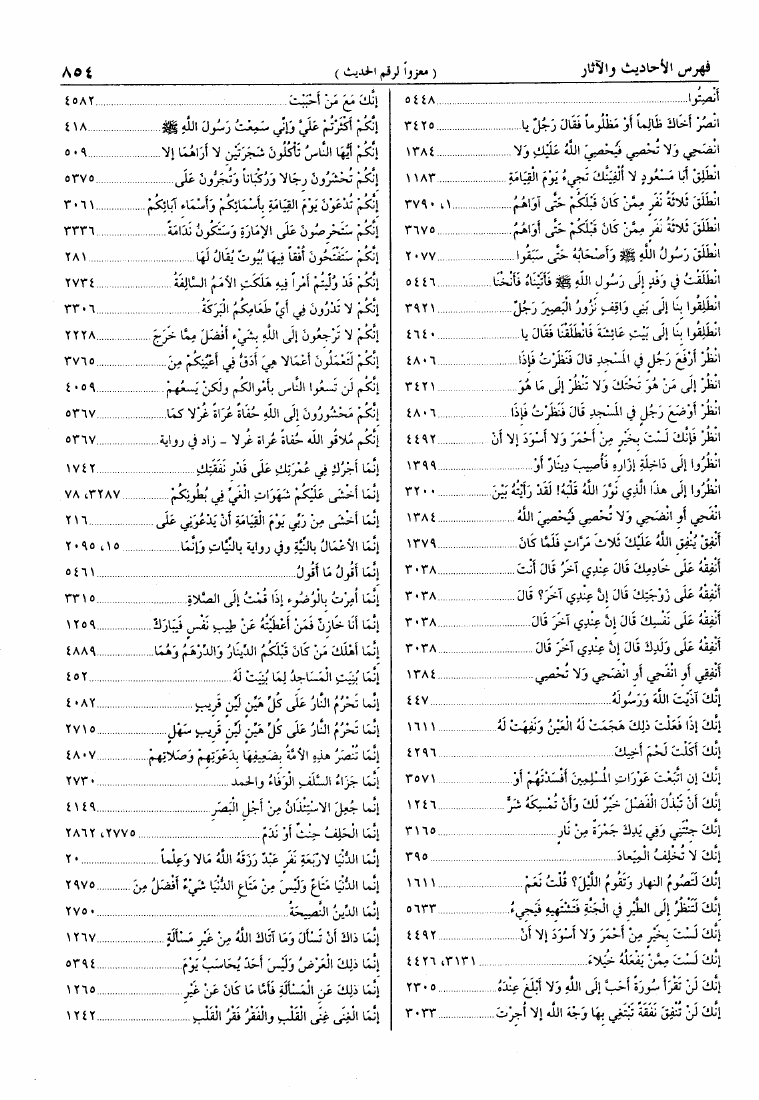 فهرس الأحاديث والآثار
( معزواً لرقم الحديث )
٨٥٤
أَنْصِتُوا ٥٤٤٨
انْصُرْ أَخَاكَ ظَالِماً أَوْ مَظْلُوماً فَقَالَ رَجُلٌ يا ٣٤٢٥
انْضَحِي وَلا تُحْصِي فَيُحْصِيَ اللَّهُ عَلَيْكِ وَلا ١٣٨٤
انْطَلِقْ أَبَا مَسْعُودٍ لا أُلْفِيَنَّكَ تَجِيءُ يَوْمَ الْقِيَامَةِ ١١٨٣
انْطَلَقَ ثَلاثَةُ نَفَرٍ مِمَّنْ كَانَ قَبْلَكُمْ حَتَّى آوَاهُمُ ١، ٣٧٩٠
انْطَلَقَ ثَلاثَةُ نَفَرٍ مِمَّنْ كَانَ قَبْلَكُمْ حَتَّى آوَاهُمُ ٣٦٧٥
انْطَلَقَ رَسُولُ اللَّهِ ﷺ وَأَصْحَابُهُ حَتَّى سَبَقُوا ٢٠٧٧
انْطَلَقْتُ فِي وَفْدٍ إِلَى رَسُولِ اللَّهِ ﷺ فَأَتَيْنَاهُ فَأَنَخْنَا ٥٤٤٦
انْطَلِقُوا بِنَا إِلَى بَنِي وَاقِفٍ نَزُورُ الْبَصِيرَ رَجُلٌ ٣٩٢١
انْطَلِقُوا بِنَا إِلَى بَيْتِ عَائِشَةَ فَانْطَلَقْنَا فَقَالَ يا ٤٦٤٠
انْظُرْ أَرْفَعَ رَجُلٍ فِي الْمَسْجِدِ قالَ فَنَظَرْتُ فَإِذَا ٤٨٠٦
انْظُرْ إِلَى مَنْ هُوَ تَحْتَكَ وَلا تَنْظُرْ إِلَى مَا هُوَ ٣٤٢١
انْظُرْ أَوْضَعَ رَجُلٍ فِي الْمَسْجِدِ قَالَ فَنَظَرْتُ فَإِذَا ٤٨٠٦
انْظُرْ فَإِنَّكَ لَسْتَ بِخَيْرٍ مِنْ أَحْمَرَ وَلا أَسْوَدَ إِلا أَنْ ٤٤٩٢
انْظُرُوا إِلَى دَاخِلَةِ إِزَارِهِ فَأُصِيبَ دِينَارٌ أَوْ ١٣٩٩
انْظُرُوا إِلَى هذَا الَّذِي نَوَّرَ اللَّهُ قَلْبَهُ! لَقَدْ رَأَيْتُهُ بَيْنَ ٣٢٠٠
انْفَحِي أَوِ انْضَحِي وَلا تُحْصِي فَيُحْصِيَ اللَّهُ ١٣٨٤
أَنْفِقْ يُنْفِقِ اللَّهُ عَلَيْكَ ثَلاثَ مَرَّاتٍ فَلَمَّا كَانَ ١٣٧٩
أَنْفِقْهُ عَلَى خَادِمِكَ قَالَ عِنْدِي آخَرُ قَالَ أَنْتَ ٣٠٣٨
أَنْفِقْهُ عَلَى زَوْجَتِكَ قَالَ إِنَّ عِنْدِي آخَرَ؟ قَالَ ٣٠٣٨
أَنْفِقْهُ عَلَى نَفْسِكَ قَالَ إِنَّ عِنْدِي آخَرَ قَالَ ٣٠٣٨
أَنْفِقْهُ عَلَى وَلَدِكَ قَالَ إِنَّ عِنْدِي آخَرَ قَالَ ٣٠٣٨
أَنْفِقِي أَوِ انْفَحِي أَوِ انْضَحِي وَلا تُحْصِي ١٣٨٤
إِنَّكَ آذَيْتَ اللَّهَ وَرَسُولَهُ ٤٤٧
إِنَّكَ إِذَا فَعَلْتَ ذلِكَ هَجَمَتْ لَهُ الْعَيْنُ وَنَفِهَتْ لَهُ ١٦١١
إِنَّكَ أَكَلْتَ لَحْمَ أَخِيكَ ٤٢٩٦
إِنَّكَ إِنِ اتَّبَعْتَ عَوْرَاتِ الْمُسْلِمِينَ أَفْسَدْتَهُمْ أَوْ ٣٥٧١
إِنَّكَ أَنْ تَبْذُلَ الْفَضْلَ خَيْرٌ لَكَ وَأَنْ تُمْسِكَهُ شَرٌّ ١٢٤٦
إِنَّكَ جِئْتَنِي وَفِي يَدِكَ جَمْرَةٌ مِنْ نَارٍ ٣١٦٥
إِنَّكَ لا تُخْلِفُ الْمِيعادَ ٣٩٥
إِنَّكَ لَتَصُومُ النهار وَتَقُومُ اللَّيْلَ؟ قُلْتُ نَعَمْ ١٦١١
إِنَّكَ لَتَنْظُرُ إِلَى الطَّيْرِ فِي الْجَنَّةِ فَتَشْتَهِيهِ فَيَجِيءُ ٥٦٣٣
إِنَّكَ لَسْتَ بِخَيْرٍ مِنْ أَحْمَرَ وَلا أَسْوَدَ إِلا أَنْ ٤٤٩٢
إِنَّكَ لَسْتَ مِمَّنْ يَفْعَلُهُ خُيَلاءَ ٣١٣١، ٤٤٢٦
إِنَّكَ لَنْ تَقْرَأَ سُورَةً أَحَبَّ إِلَى اللَّهِ وَلا أَبْلَغَ عِنْدَهُ ٢٣٠٥
إِنَّكَ لَنْ تُنْفِقَ نَفَقَةً تَبْتَغِي بِهَا وَجْهَ الله إلا أُجِرْتَ ٣٠٣٣
إِنَّكَ مَعَ مَنْ أَحْبَبْتَ ٤٥٨٢
إِنَّكُمْ أَكْثَرْتُمْ عَلَيَّ وَإِنِّي سَمِعْتُ رَسُولَ اللَّهِ ﷺ ٤١٨
إِنَّكُمْ أَيُّهَا النَّاسُ تَأْكُلُونَ شَجَرَتَيْنِ لا أَرَاهُمَا إلا ٥٠٩
إِنَّكُمْ تُحْشَرُونَ رِجالا وَرُكْبَاناً وَتُجَرُّونَ عَلَى ٥٣٧٥
إِنَّكُمْ تُدْعَوْنَ يَوْمَ الْقِيَامَةِ بِأَسْمَائِكُمْ وَأَسْمَاءِ آبَائِكُمْ ٣٠٦١
إِنَّكُمْ سَتَحْرِصُونَ عَلَى الإِمَارَةِ وَسَتَكُونُ نَدَامَةً ٣٣٣٦
إِنَّكُمْ سَتَفْتَحُونَ أُفُقاً فِيهَا بُيُوتٌ يُقَالُ لَهَا ٢٨١
إِنَّكُمْ قَدْ وُلِّيتُمْ أَمْراً فِيهِ هَلَكَتِ الأمَمُ السَّالِفَةُ ٢٧٣٤
إِنَّكُمْ لا تَدْرُونَ فِي أَيِّ طَعَامِكُمُ الْبَرَكَةُ ٣٣٠٦
إِنَّكُمْ لا تَرْجِعُونَ إِلَى اللَّهِ بِشَيْءٍ أَفْضَلَ مِمَّا خَرَجَ ٢٢٢٨
إِنَّكُمْ لَتَعْمَلُونَ أَعْمَالا هِيَ أَدَقُّ فِي أَعْيُنِكُمْ مِنَ ٣٧٦٥
إِنَّكُمْ لَن تَسَعُوا النَّاس بأمْوالكُم ولكِنْ يَسعُهمْ ٤٠٥٩
إِنَّكُمْ مَحْشُورُونَ إِلَى اللَّهِ حُفَاةً عُرَاةً غُرْلا كما ٥٣٦٧
إِنَّكُم مُلاقُو الله حُفاةً عُراة غُرلا - زاد في رواية ٥٣٦٧
إِنَّمَا أَجْرُكِ فِي عُمْرَتِكِ عَلَى قَدْرِ نَفَقَتِكِ ١٧٤٢
إِنَّمَا أَخْشَى عَلَيْكُمْ شَهَوَاتِ الْغَيِّ فِي بُطُونِكُمْ ٣٢٨٧، ٧٨
إِنَّمَا أَخْشَى مِنْ رَبِّي يَوْمَ الْقِيَامَةِ أَنْ يَدْعُوَنِي عَلَى ٢١٦
إِنَّمَا الأعْمَالُ بِالنِّيَّةِ وفي رواية بِالنِّيَّاتِ وَإِنَّمَا ١٥، ٢٠٩٥
إِنَّمَا أَقُولُ مَا أَقُولُ ٥٤٦١
إِنَّمَا أُمِرْتُ بِالْوُضُوءِ إِذَا قُمْتُ إِلَى الصَّلاةِ ٣٣١٥
إِنَّمَا أَنَا خَازِنٌ فَمَنْ أَعْطَيْتُهُ عَنْ طِيبِ نَفْسٍ فَيُبَارَكُ ١٢٥٩
إِنَّمَا أَهْلَكَ مَنْ كَانَ قَبْلَكُمُ الدِّينَارُ وَالدِّرْهَمُ وَهُمَا ٤٨٨٩
إِنَّمَا بُنِيَتِ الْمَسَاجِدُ لِمَا بُنِيَتْ لَهُ ٤٥٢
إنَّما تَحْرُمُ النَّارُ عَلَى كُلِّ هَيِّنٍ لَيِّنٍ قَرِيبٍ ٤٠٨٢
إِنَّمَا تَحْرُمُ النَّارُ عَلَى كُلِّ هَيِّنٍ لَيِّنٍ قَرِيبٍ سَهْلٍ ٢٧١٥
إِنَّمَا تُنْصَرُ هذِهِ الأمَّةُ بِضَعِيفِهَا بِدَعْوَتِهِمْ وَصَلاتِهِمْ ٤٨٠٧
إِنَّمَا جَزَاءُ السَّلَفِ الْوَفَاءُ والحمد ٢٧٣٠
إنَّما جُعِلَ الاسْتِئْذَانُ مِنْ أَجْلِ الْبَصَرِ ٤١٤٩
إِنَّمَا الْحَلِفُ حِنْثٌ أَوْ نَدَمٌ ٢٧٧٥، ٢٨٦٢
إِنَّمَا الدُّنْيَا لأرْبَعَةِ نَفَرٍ عَبْدٌ رَزَقَهُ اللَّهُ مَالا وَعِلْماً ٢٠
إنَّما الدُّنْيَا مَتَاعٌ وَلَيْسَ مِنْ مَتَاعِ الدُّنْيَا شَيْءٌ أَفْضَلَ مِنَ ٢٩٧٥
إِنَّمَا الدِّينُ النَّصِيحَةُ ٢٧٥٠
إِنَّمَا ذاكَ أَنْ تَسْأَلَ وَمَا آتَاكَ اللَّهُ مِنْ غَيْرِ مَسْأَلَةٍ ١٢٦٧
إِنَّمَا ذلِكَ الْعَرْضُ وَلَيْسَ أَحَدٌ يُحَاسَبُ يَوْمَ ٥٣٩٤
إِنَّمَا ذلِكَ عَنِ الْمَسْأَلَةِ فَأَمَّا مَا كَانَ عَنْ غَيْرِ ١٢٦٥
إِنَّمَا الْغِنَى غِنَى الْقَلْبِ والْفَقْرُ فَقْرُ الْقَلْبِ ١٢٤٢